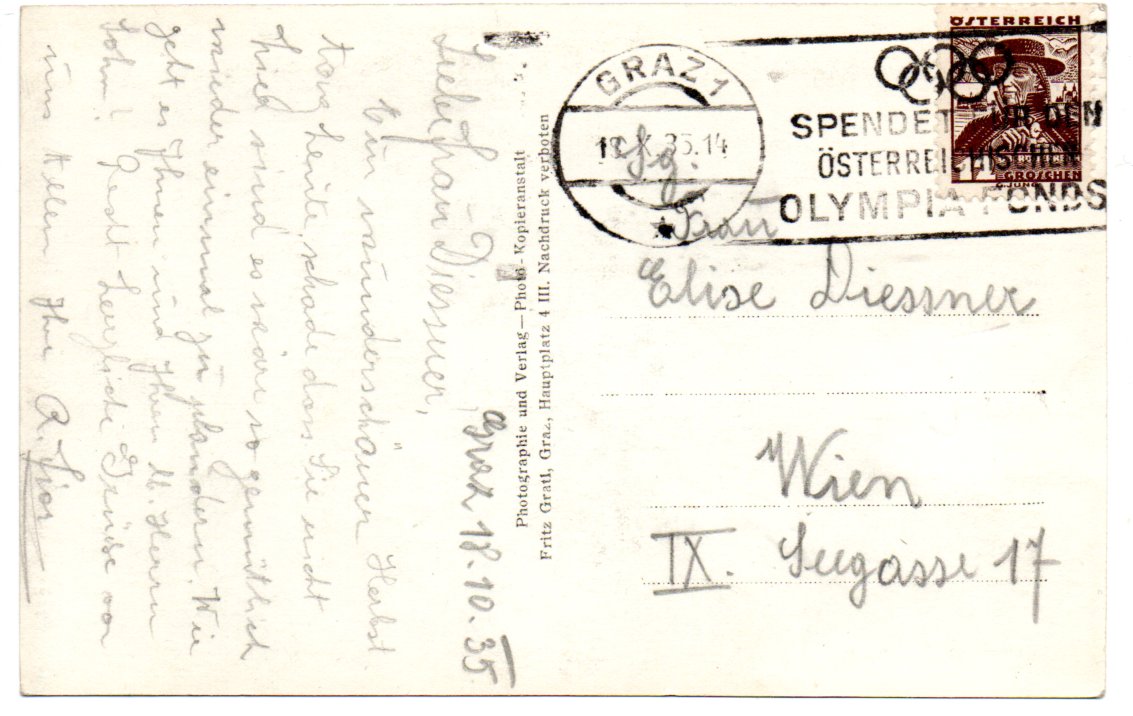 Graz 18.10.35
Liebe Frau Diessner,
Ein wunderschöner Herbst
tag heute, schade dass Sie nicht
hier sind es wäre so gemütlich
wieder einmal zu plaudern. Wie
geht es Ihnen und Ihrem lb. Herrn
Sohn? Recht herzliche Grüsse von
uns Allen Ihre
Photographie und Verlag — Photo-Kopieranstalt
Fritz Gratl, Graz, Hauptplatz 4 III. Nachdruck verboten
GRAZ 1
X.35.14
SPENDET FÜR DEN
ÖSTERREICHISCHEN
OLYMPIA-FONDS
ÖSTERREICH
GROSCHEN
Frau
Elise Diessner
Wien
IX. Seegasse 17